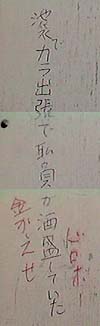 でカラ出張で耺員が酒盛していた
金かえせ
ドロボー